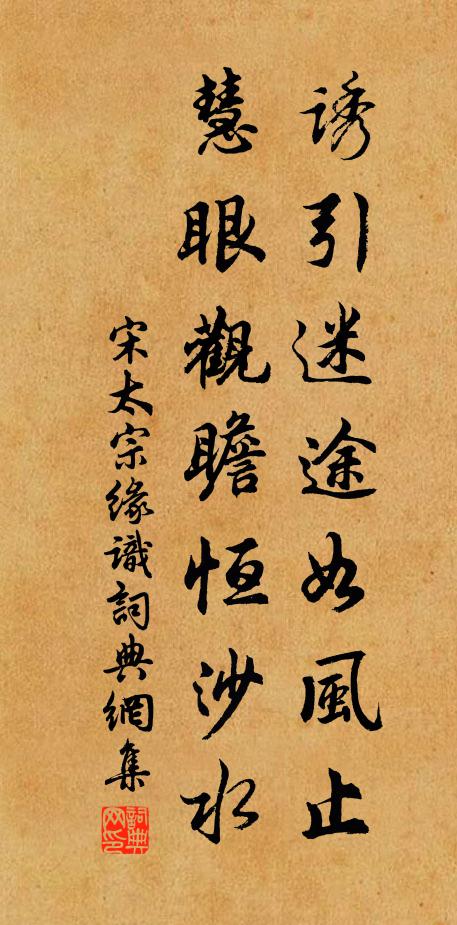 誘引迷途如風止
慧眼觀瞻恒沙水
宋太宗緣識詞典網集
詞典網印